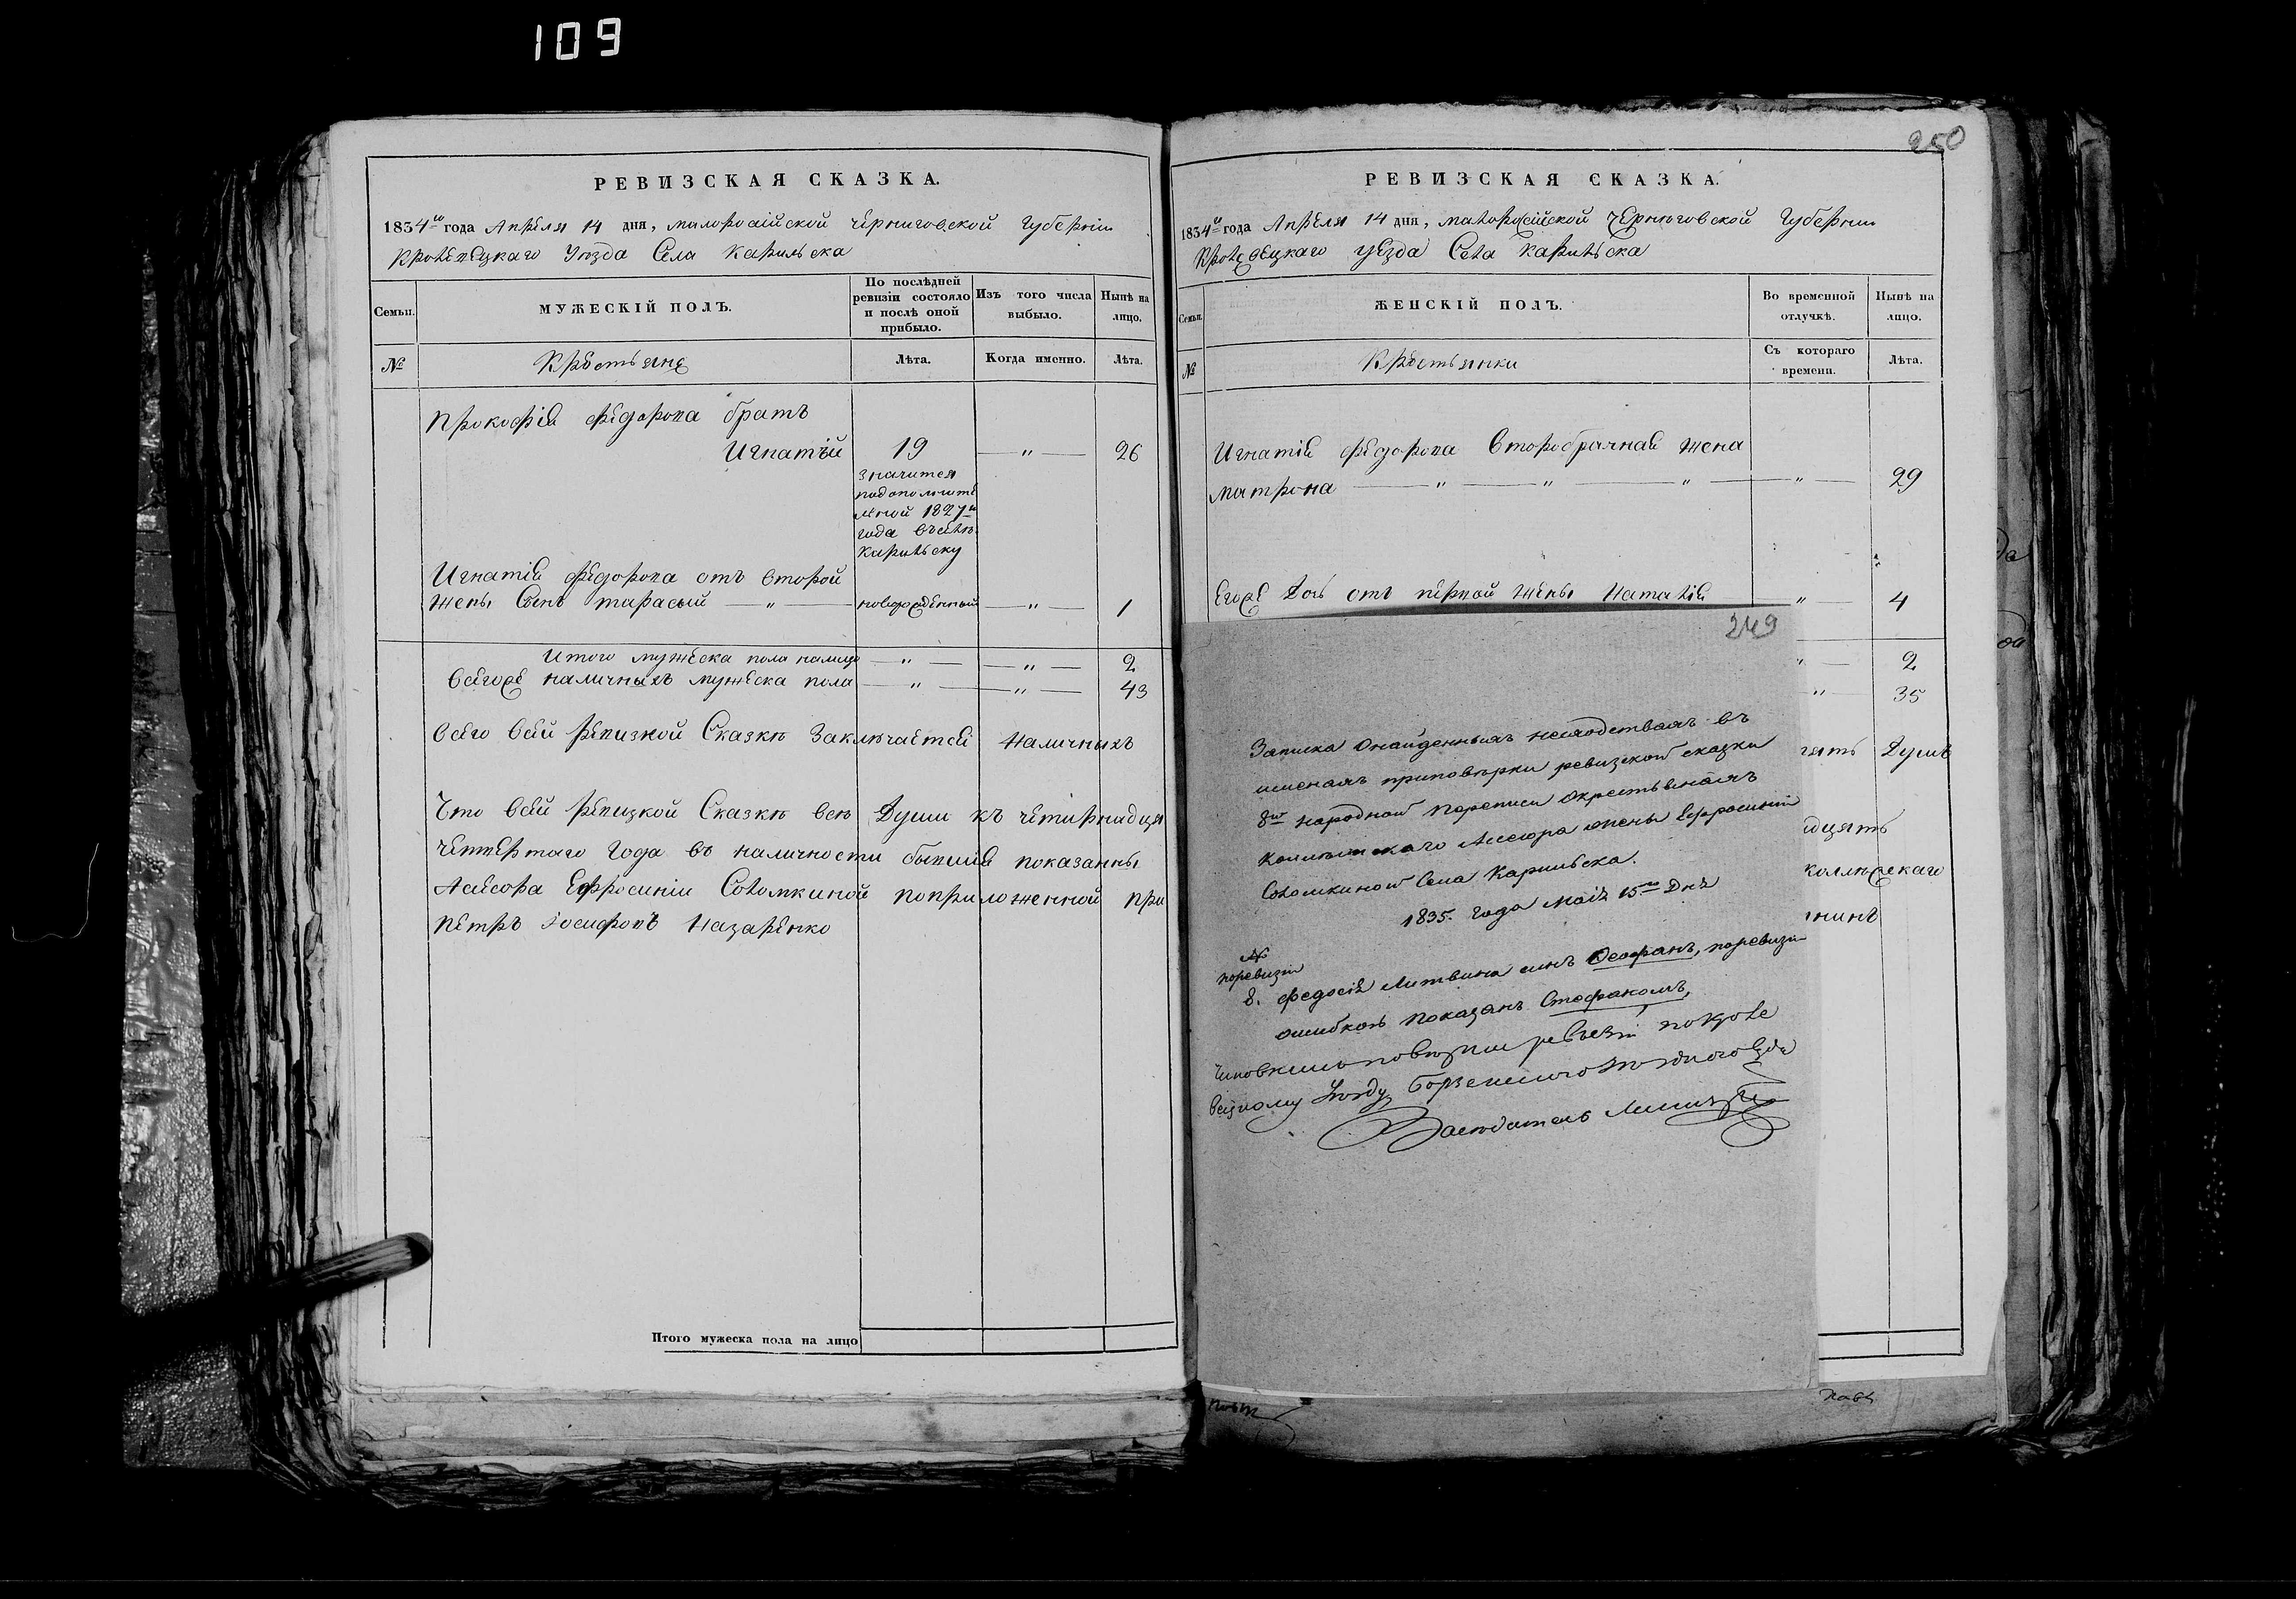 109
РЕВИЗСКАЯ СКАЗКА.
1834го года Апреля 14 дня, малоросийской черниговской Губернии
Кролевецкаго Уезда Села Карильска
Семьи.
МУЖЕСКІЙ ПОЛЪ.
По послѣдней ревизіи состояло и послѣ оной прибыло.
Изъ того числа выбыло.
Нынѣ на лицо.
№
Крестьяне
Лѣта.
Когда именно.
Лѣта.
Прокофія федорова братъ
Игнатъй 19 — " — 26
значится
подополните
лной 1827го
года въ селѣ
Карильску
Игнатія федорова отъ второй
жены Сынъ тарасый — " — новорожденный — " — 1
Итого мужеска пола налицо — " — — " — 2
Всего же наличныхъ мужеска пола — " — — " — 43
Всего в сей ревизкой Сказки Заключается Наличныхъ
Что в сей ревизкой Сказки все Души къ четирнадця
четвертаго Года въ наличности бывшія показанны
Асесора Ефросиніи Соломкиной поприложенной при
Петръ Іосифовъ Назаренко
Итого мужеска пола на лицо
250
РЕВИЗСКАЯ СКАЗКА.
1834го года Апреля 14 дня, малоросійской Черниговской Губернии
Кролевецкаго уезда Села Карильска
Семьи.
ЖЕНСКІЙ ПОЛЪ.
Во временной отлучкѣ.
Нынѣ на лицо.
№
Крестьянки
Съ котораго времени.
Лѣта.
Игнатія федорова второбрачная жена
матрона — " — " — " — " — 29
Его же Дочь отъ первой жены Наталія " 4
" — 2
" — 35
ять Душъ
дцять
коллежскаго
нинъ
249
Записка О найденныхъ несходствахъ въ
именахъ приповѣрки ревизской сказки
8й народной переписи О крестьянахъ
Коллежскаго Ассесора жены Ефросиніи
Соломкиной Села Карильска.
1835. года маія 15го Дня
№
поревизіи
8. Федосія Литвина сынъ Феофанъ, поревизіи
ошибкою показанъ Стефаномъ,
Чиновникъ повѣрки ревизіи по Кроле
вецкому уезду Борзенского
Заседатель